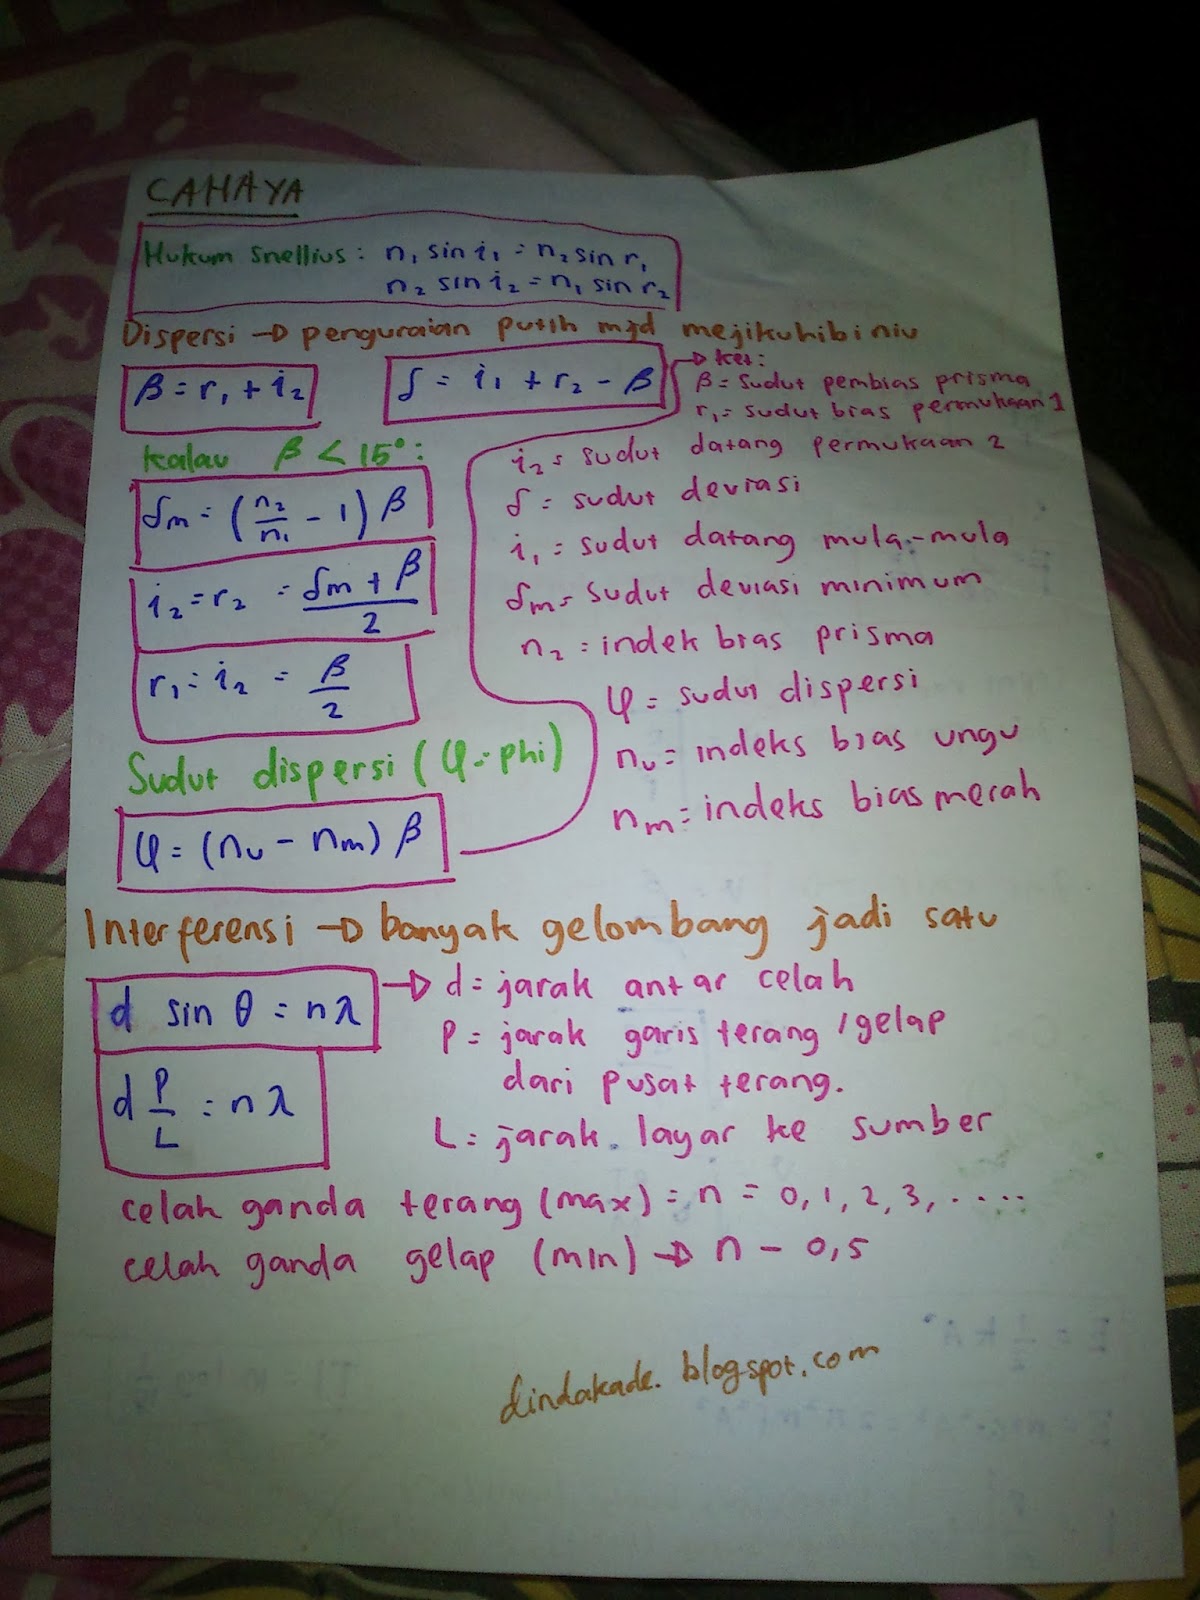 CAHAYA
Hukum Snellius : n₁ sin i₁ = n₂ sin r₁
n₂ sin i₂ = n₁ sin r₂
Dispersi → penguraian putih mjd mejikuhibiniu
β = r₁ + i₂
δ = i₁ + r₂ - β
→ ket:
β = sudut pembias prisma
r₁ = sudut bias permukaan 1
i₂ = sudut datang permukaan 2
δ = sudut deviasi
i₁ = sudut datang mula-mula
δm = sudut deviasi minimum
n₂ = indek bias prisma
φ = sudut dispersi
nu = indeks bias ungu
nm = indeks bias merah
kalau β < 15° :
δm = (n₂/n₁ - 1) β
i₂ = r₂ = (δm + β)/2
r₁ = i₂ = β/2
Sudut dispersi (φ = phi)
φ = (nu - nm) β
Interferensi → banyak gelombang jadi satu
d sin θ = nλ
d P/L = nλ
→ d = jarak antar celah
P = jarak garis terang /gelap
dari pusat terang.
L = jarak layar ke sumber
celah ganda terang (max) = n = 0, 1, 2, 3, .....
celah ganda gelap (min) → n - 0,5
dindakade.blogspot.com